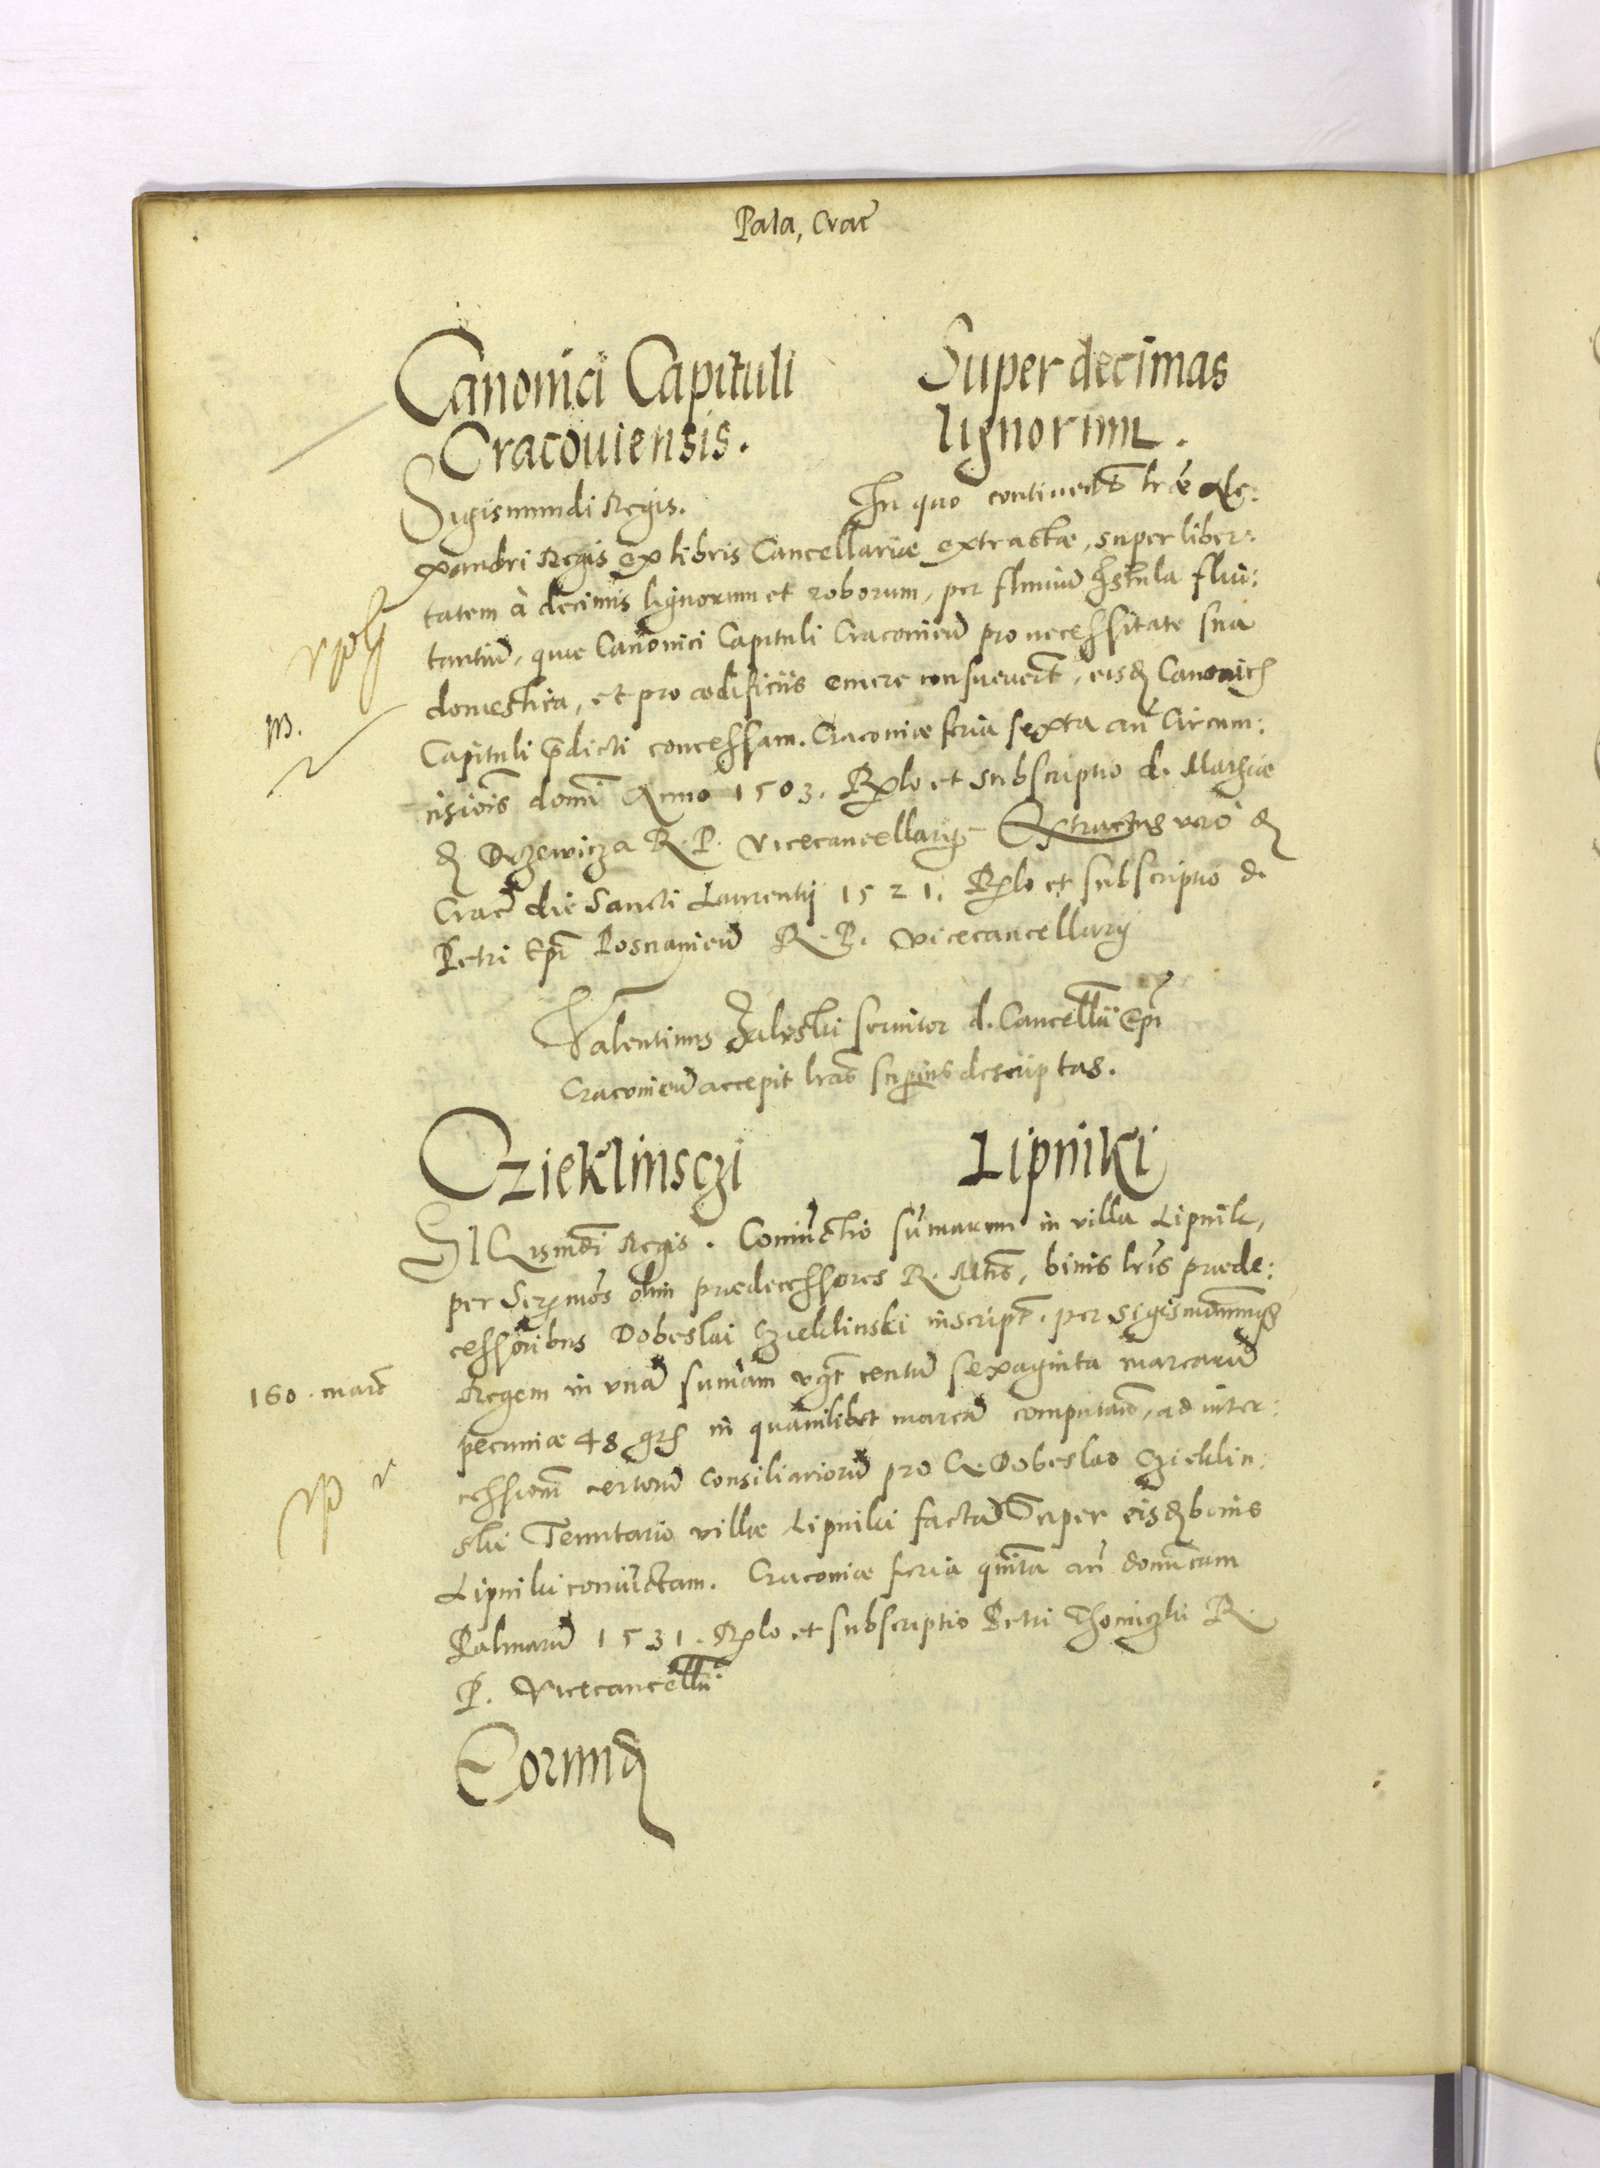 Pala, Crac̄
Canonici Capituli Super decimas
Cracouiensis. lignorum.
Sigismundi Regis. In quo continent͞r lr̄æ Ale:
xandri Regis ex libris Cancellariæ extractæ, super liber:
tatem à decimis lignorum et roborum, per fluuiū Istula flui:
tantiū, quæ Canonici Capituli Cracouieñ pro necessitate sua
domestica, et pro ædificiis emere consueuert̄, eisd Canonicis
Capituli p̄dicti concessam. Cracouiæ feria sexta an̄ Circum:
cisiois̄ domī Anno 1503. Rlo et subscriptio d. Mathiæ
d Drzewicza R. P. vicecancellarij Extractus uero d
Crac̄ die Sancti Laurentij 1521. Rlo et subscriptio d.
Petri Ep̄i Posnanieñ R. P. vicecancellarij
Valentinus Zaleski seruitor d. Cancellri Ep̄i
Cracouieñ accepit lr̄as superius descriptas.
Czieklinsczi Lipniki
SIGismd̄i Regis. Coniūctio sūmarum in villa Lipnik,
per Serm̄os olim prædecessores R. Mtis̄, binis lr̄is præde:
cessoribus Dobeslai Czieklinski inscript̄. per Sigismundum
160. marc̄ Regem in vnā summam vz̄ centū sexaginta marcarū
pecuniæ 48 grs in quamlibet marcā computan̄, ad inter:
cessionē certorū Consiliariorū pro G. Dobeslao Czieklin:
ski Tenutario villæ Lipniki factā Super eisd bonis
Lipniki coniūctam. Cracouiæ feria quinta an̄ dominicam
Palmarū 1531. Rlo et subscriptio Petri Thomiczki R.
P. Vicecancellri
Eorund